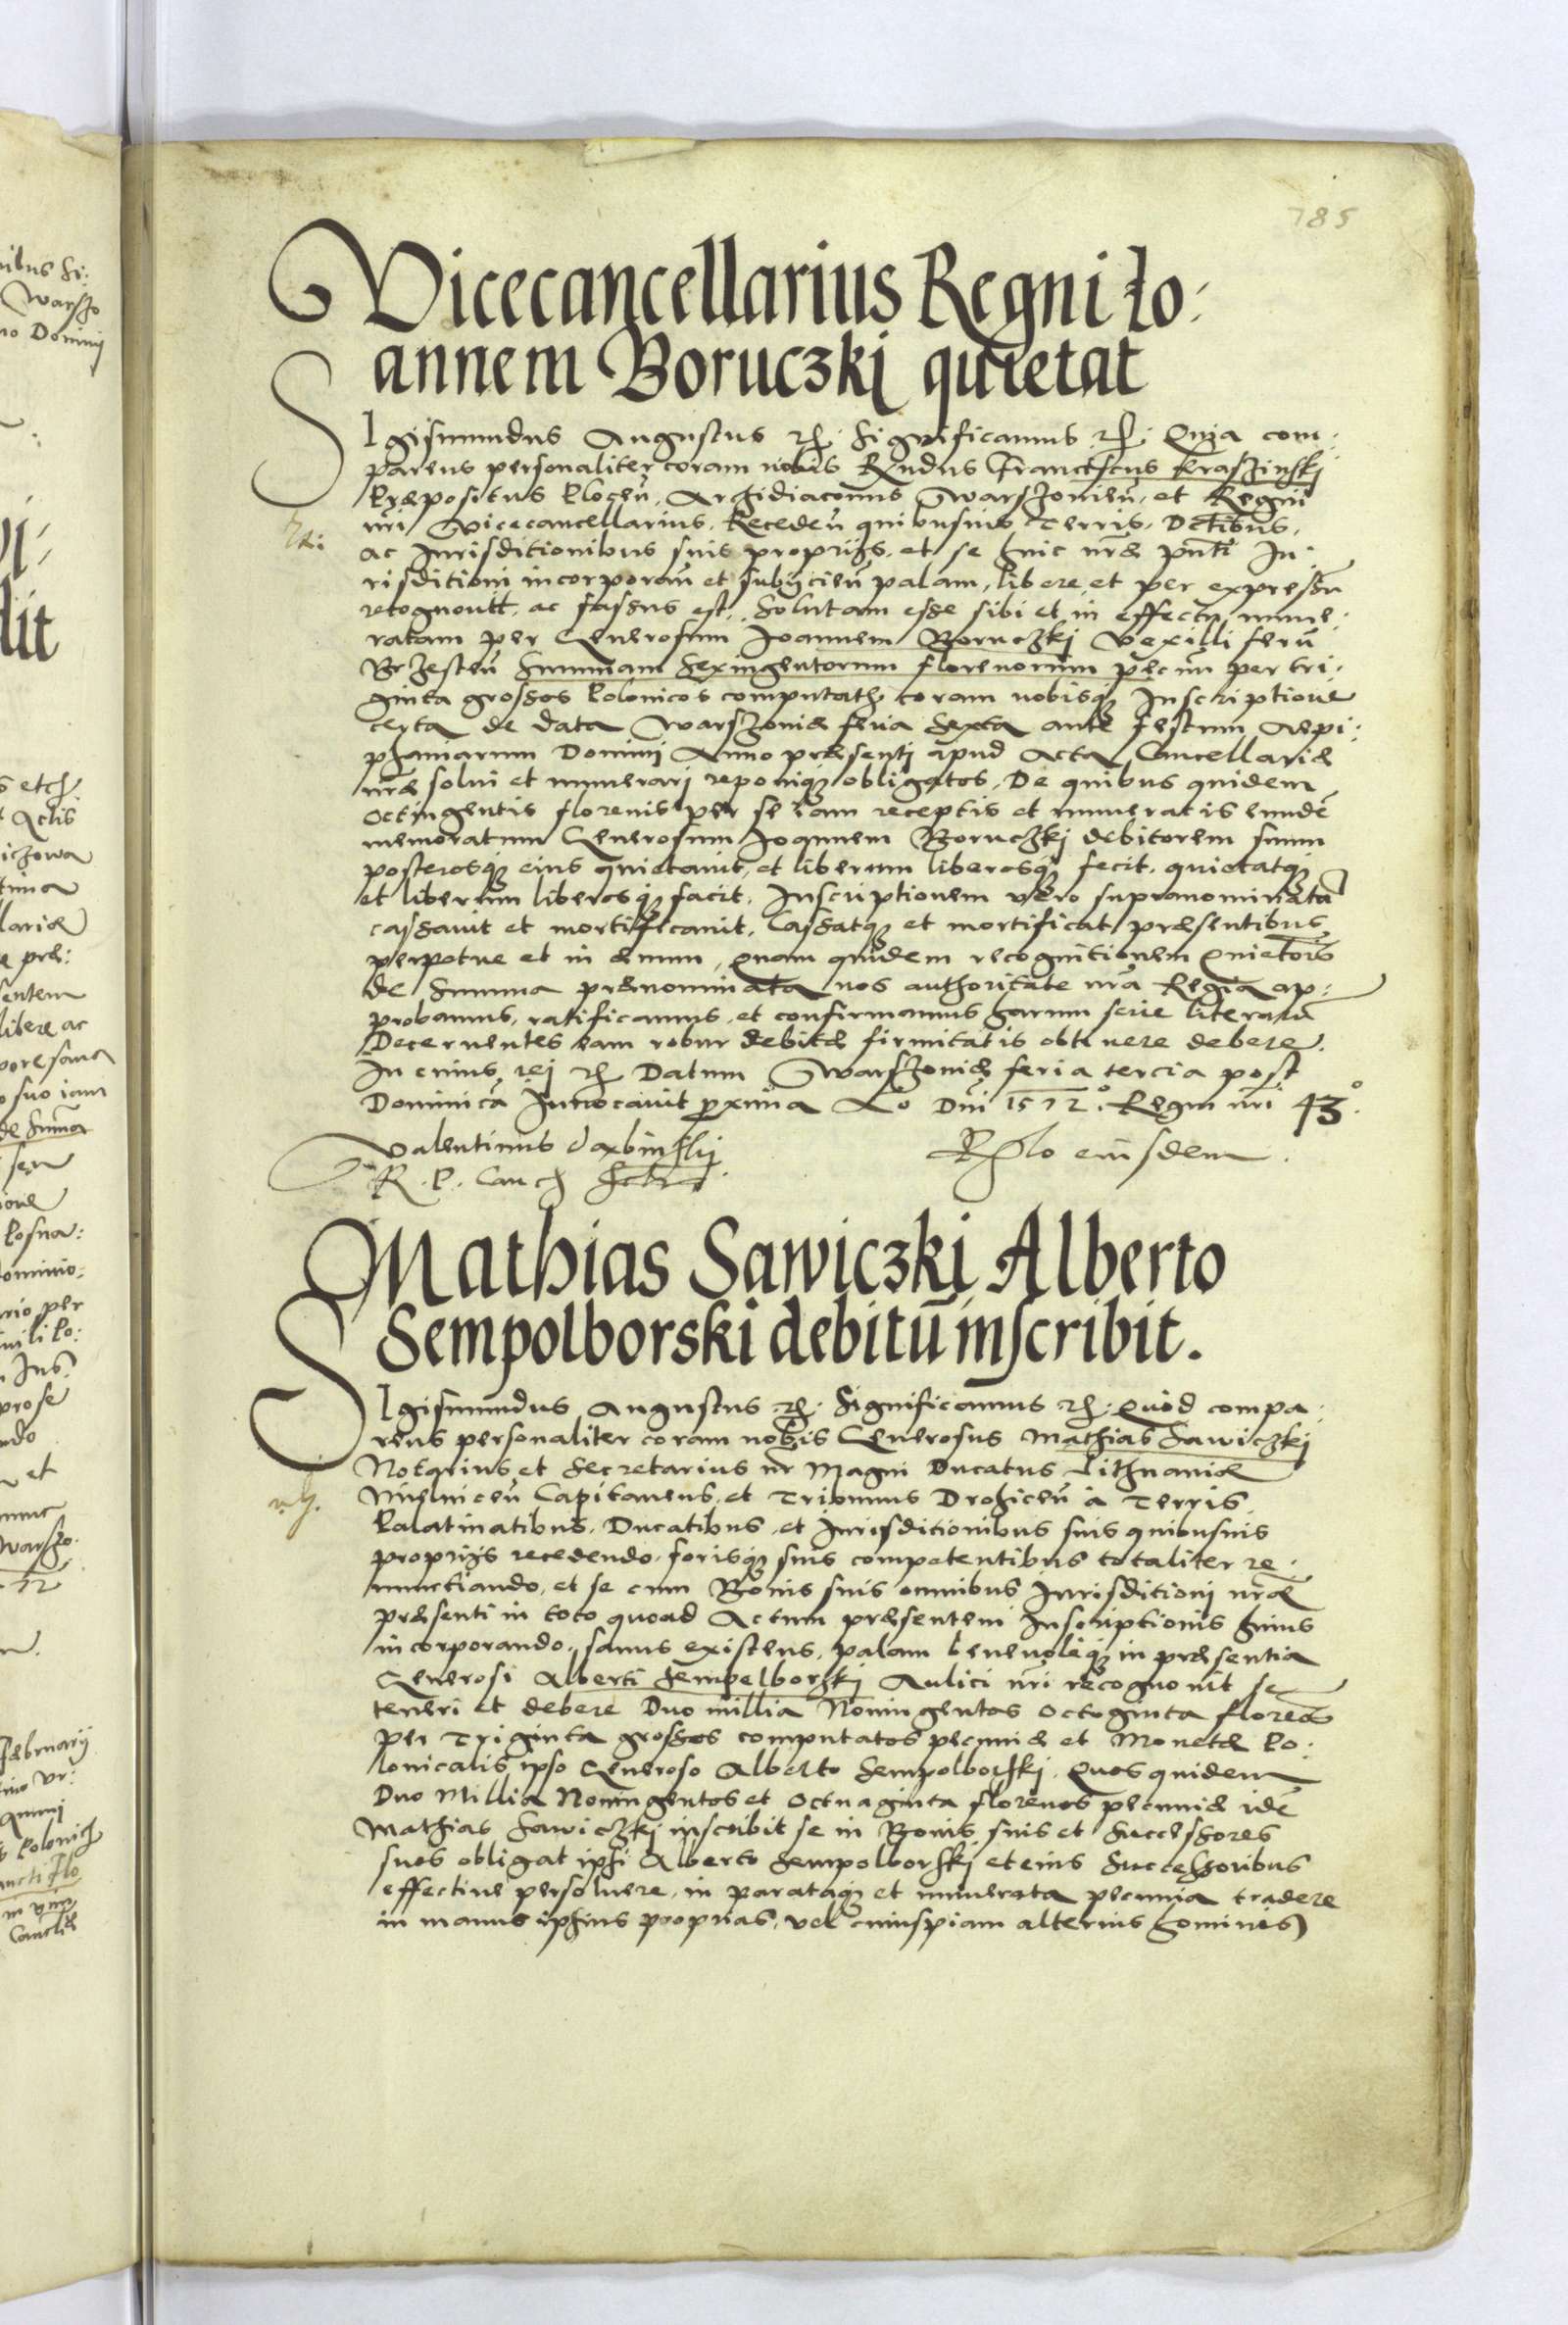 785
Vicecancellarius Regni Jo:
annem Boruczki quietat
SIgismundus Augustus etc. Significamus etc. Quia com:
parens personaliter coram nobis Rndus Franciscus Kraszinski
Præpositus Plocen̄, Archidiaconus Warszovien̄, et Regni
nri Vicecancellarius, Receden̄ quibusuis Terris, Dctibus,
ac Jurisditionibus suis proprijs, et se huic nræ pnti Ju:
risditioni incorporan̄ et subijcien̄ palam, libere, et per expressu
recognouit, ac fassus est, Solutam esse sibi et in effectu nume:
ratam per Generosum Joannem Boruczki Vexilliferū
Brzesten̄ Summam Sexingentorum florenorum pecun̄ per tri:
ginta grossos Polonicos computatǫ coram nobisq̨ Inscriptione
certa de data Warszouiæ feria Sexta ante festum Aepi:
phaniarum Domini Anno præsenti apud Acta Cancellariæ
nræ solui et numerari reponiq̨ obligatos, De quibus quidem
Octingentis florenis per se iam receptis et numeratis eundē
memoratum Generosum Joannem Boruczki debitorem suum
posterosq̨ eius quietauit, et liberum liberosq̨ fecit, quietatq̨
et liberum liberosq̨ facit, Inscriptionem vero supranominatā
cassauit et mortificauit, Cassatq̨ et mortificat præsentibus
perpetue et in æuum, quam quidem recognitionem Quietoris
de Summa prænominata nos authoritate nra Regia ap:
probamus, ratificamus, et confirmamus harum serie literarū
Decernentes eam robur debitæ firmitatis obtinere debere.
In cuius rei etc Datum Warszouiæ feria tercia post
Dominicā Inuocauit proxima Ao Dni 1572° Regni nri 43°.
Valentinus Daxbinskij
R. P. Canc Scbr
Rlo eiusdem.
Mathias Sawiczki Alberto
Sempolborski debitū inscribit.
SIgismundus Augustus etc. Significamus etc. Quod compa:
rens personaliter coram nobis Generosus Mathias Sawiczki
Notarius et Secretarius nr Magni Ducatus Lithuaniæ
Mielnicen̄ Capitaneus, et Tribunus Drohicen̄ a Terris
Palatinatibus, Ducatibus, et Jurisditionibus suis quibusuis
proprijs recedendo, forisq̨ suis competentibus totaliter re:
nunctiando, et se cum Bonis suis omnibus Jurisditioni nræ
præsenti in toto quoad Actum præsentem Inscriptionis huius
incorporando, sanus existens, palam beneuoleq̨ in præsentia
Generosi Alberti Sempelborzki Aulici nri recognouit se
teneri et debere Duo millia Noningentos Octoginta floreos
per Triginta grossos computatos pecuniæ et Monetæ Po:
lonicalis ipso Generoso Alberto Sempolborski, Quos quidem
Duo Millia Noningentos et Octuaginta florenos pecuniæ idē
Mathias Sawiczki inscribit se in Bonis suis et Successores
suos obligat ipsi Alberto Sempolborski et eius Successoribus
effectiue persoluere, in parataq̨ et numerata pecunia tradere
in manus ipsius proprias, vel cuiuspiam alterius hominis